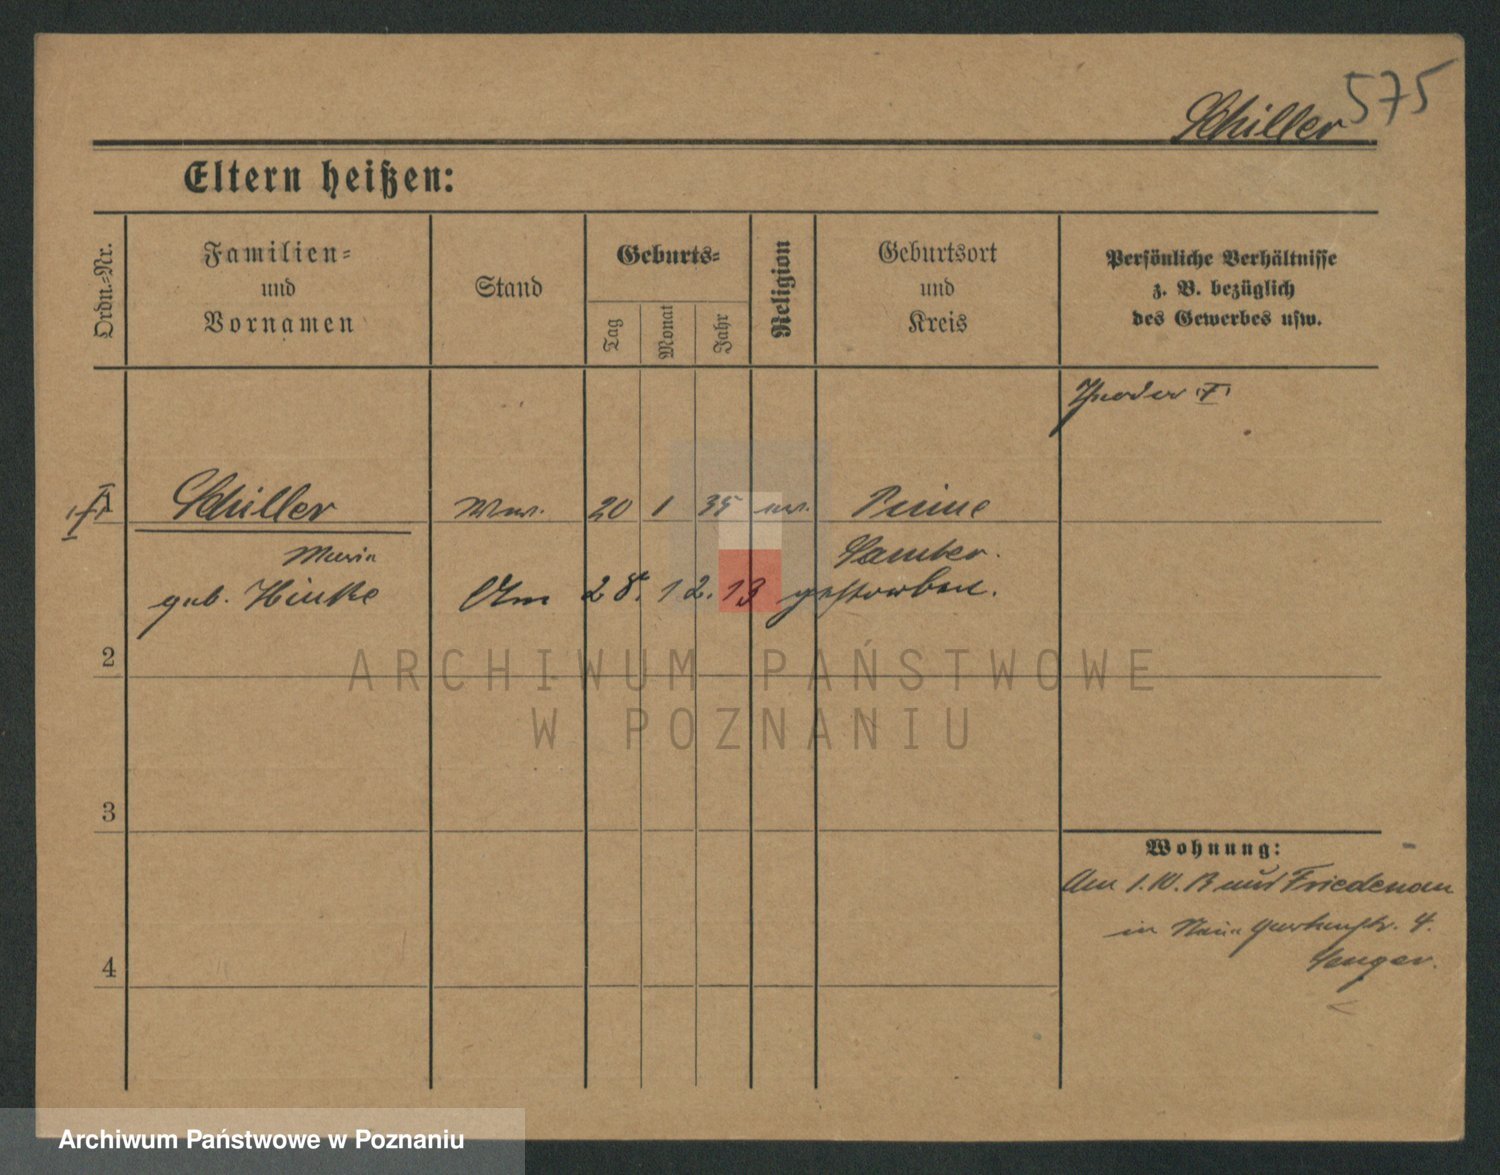 575
Schiller
Eltern heißen:
Ordn.-Nr.
Familien-
und
Vornamen
Stand
Geburts-
Tag
Monat
Jahr
Religion
Geburtsort
und
Kreis
Persönliche Verhältnisse
z. B. bezüglich
des Gewerbes usw.
Theodor †
1 Schiller Wwe. 20 1 35 ev. Pinne
Maria Samter.
geb. Hinke Am 28. 12. 13 gestorben.
2
ARCHIWUM PAŃSTWOWE
W POZNANIU
3
Wohnung:
Am 1.10. 13 aus Friedenau
in Gartenstr. 4.
4
Archiwum Państwowe w Poznaniu